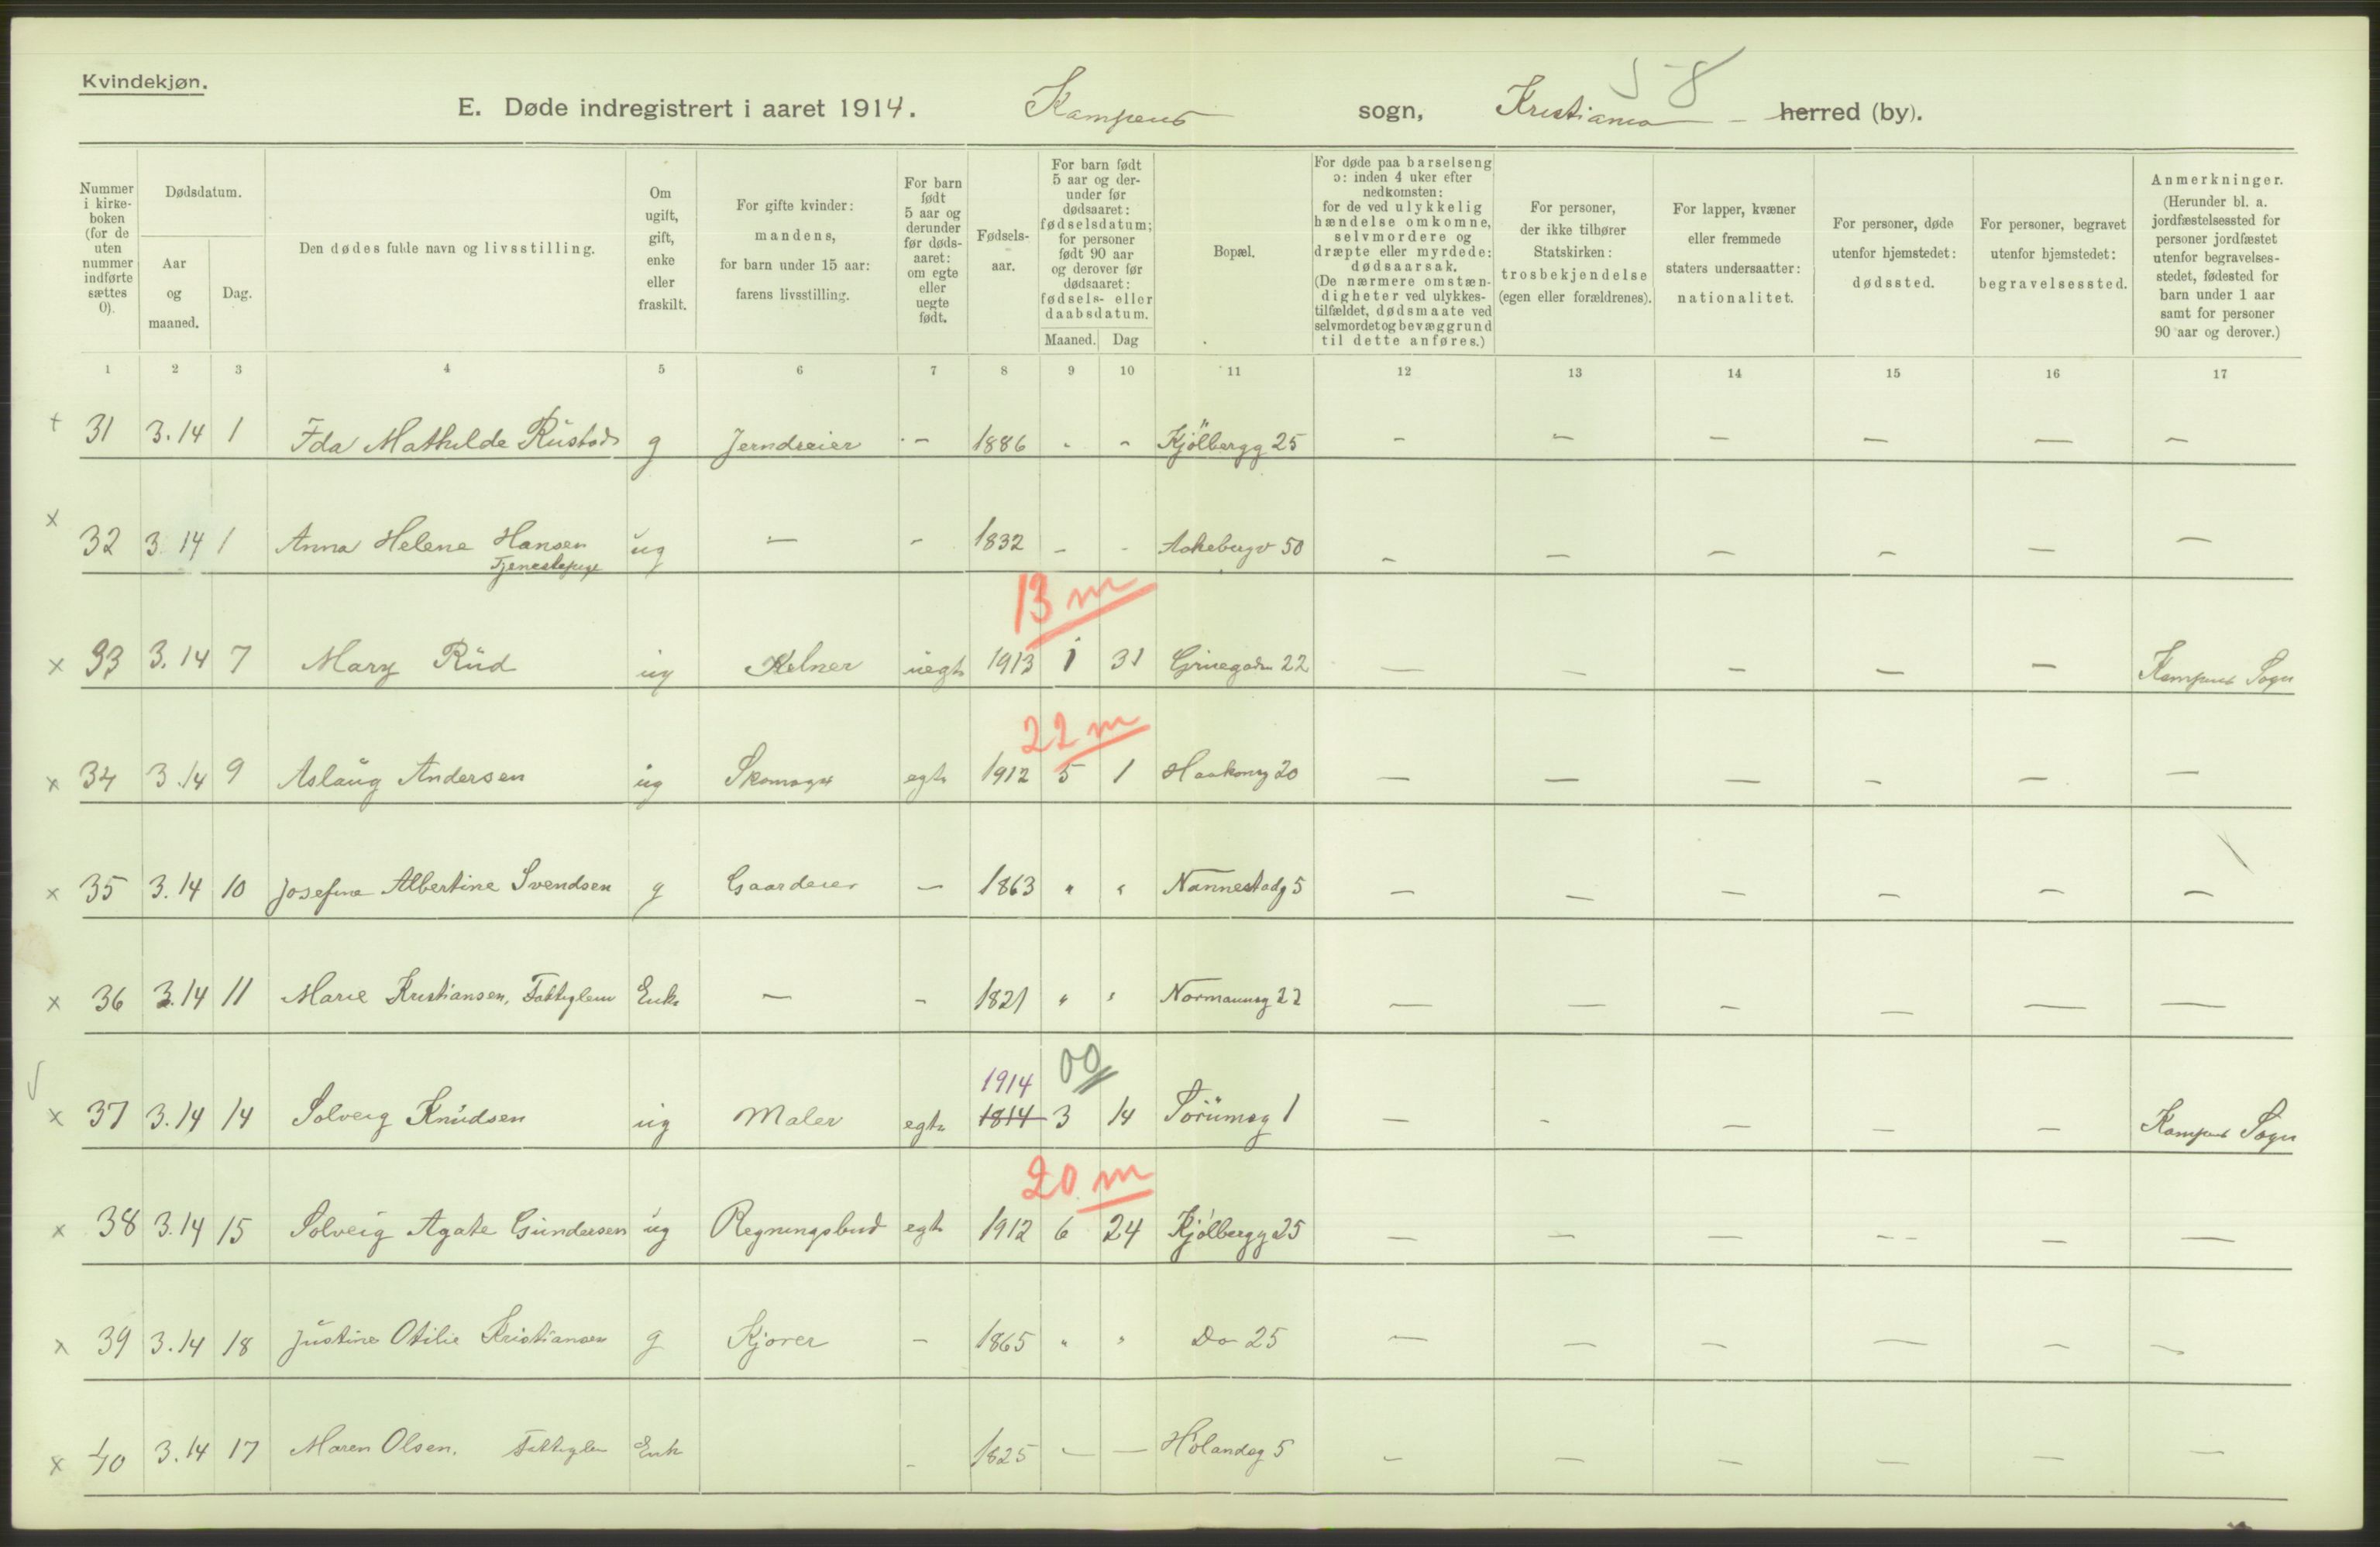 Kvindekjøn.
58
E. Døde indregistrert i aaret 1914. Kampens sogn, Kristiania herred (by).
Nummer i kirke-boken (for de uten nummer indførte sættes 0).
Dødsdatum.
Aar og maaned.
Dag.
Den dødes fulde navn og livsstilling.
Om ugift, gift, enke eller fraskilt.
For gifte kvinder: mandens, for barn under 15 aar: farens livsstilling.
For barn født 5 aar og derunder før døds-aaret: om egte eller uegte født.
Fødsels-aar.
For barn født 5 aar og der-under før dødsaaret: fødselsdatum; for personer født 90 aar og derover før dødsaaret: fødsels- eller daabsdatum.
Maaned. Dag
Bopæl.
For døde paa barselseng ɔ: inden 4 uker efter nedkomsten: for de ved ulykkelig hændelse omkomne, selvmordere og dræpte eller myrdede: dødsaarsak. (De nærmere omstæn-digheter ved ulykkes-tilfældet, dødsmaate ved selvmordet og bevæggrund til dette anføres.)
For personer, der ikke tilhører Statskirken: trosbekjendelse (egen eller forældrenes).
For lapper, kvæner eller fremmede staters undersaatter: nationalitet.
For personer, døde utenfor hjemstedet: dødssted.
For personer, begravet utenfor hjemstedet: begravelsessted.
Anmerkninger. (Herunder bl. a. jordfæstelsessted for personer jordfæstet utenfor begravelses-stedet, fødested for barn under 1 aar samt for personer 90 aar og derover.)
1 2 3 4 5 6 7 8 9 10 11 12 13 14 15 16 17
+ 31 3.14 1 Ida Mathilde Rustad g Jerndreier - 1886 - - Kjölbergg 25 - - - - - -
x 32 3 14 1 Anna Helene Hansen ug - - 1832 - - Aakebergv 50 - - - - - -
Tjenestepige
13 m
x 33 3.14 7 Mary Rud ug Kelner uegte 1913 1 31 Gruegaden 22 - - - - - Kampens Sogn
22 m
x 34 3.14 9 Aslaug Andersen ug Skomager egte 1912 5 1 Haakonsg 20 - - - - - -
x 35 3.14 10 Josefine Albertine Svendsen g Gaardeier - 1863 " " Nannestadg 5 - - - - - -
x 36 3.14 11 Marie Kristiansen, Fattiglem Enke - - 1821 " " Normannsg 22 - - - - - -
1914 00
x 37 3.14 14 Solveig Knudsen ug Maler egte 1814 3 14 Sörumsg 1 - - - - - Kampens Sogn
20 m
x 38 3.14 15 Solveig Agate Gundersen ug Regningsbud egte 1912 6 24 Kjölbergg 25 - - - - - -
x 39 3.14 18 Justine Otilie Kristiansen g Kjörer - 1865 " " Do 25 - - - - - -
x 40 3.14 17 Maren Olsen. Fattiglem Enke - 1825 - - Hölandsg 5 - - - - - -